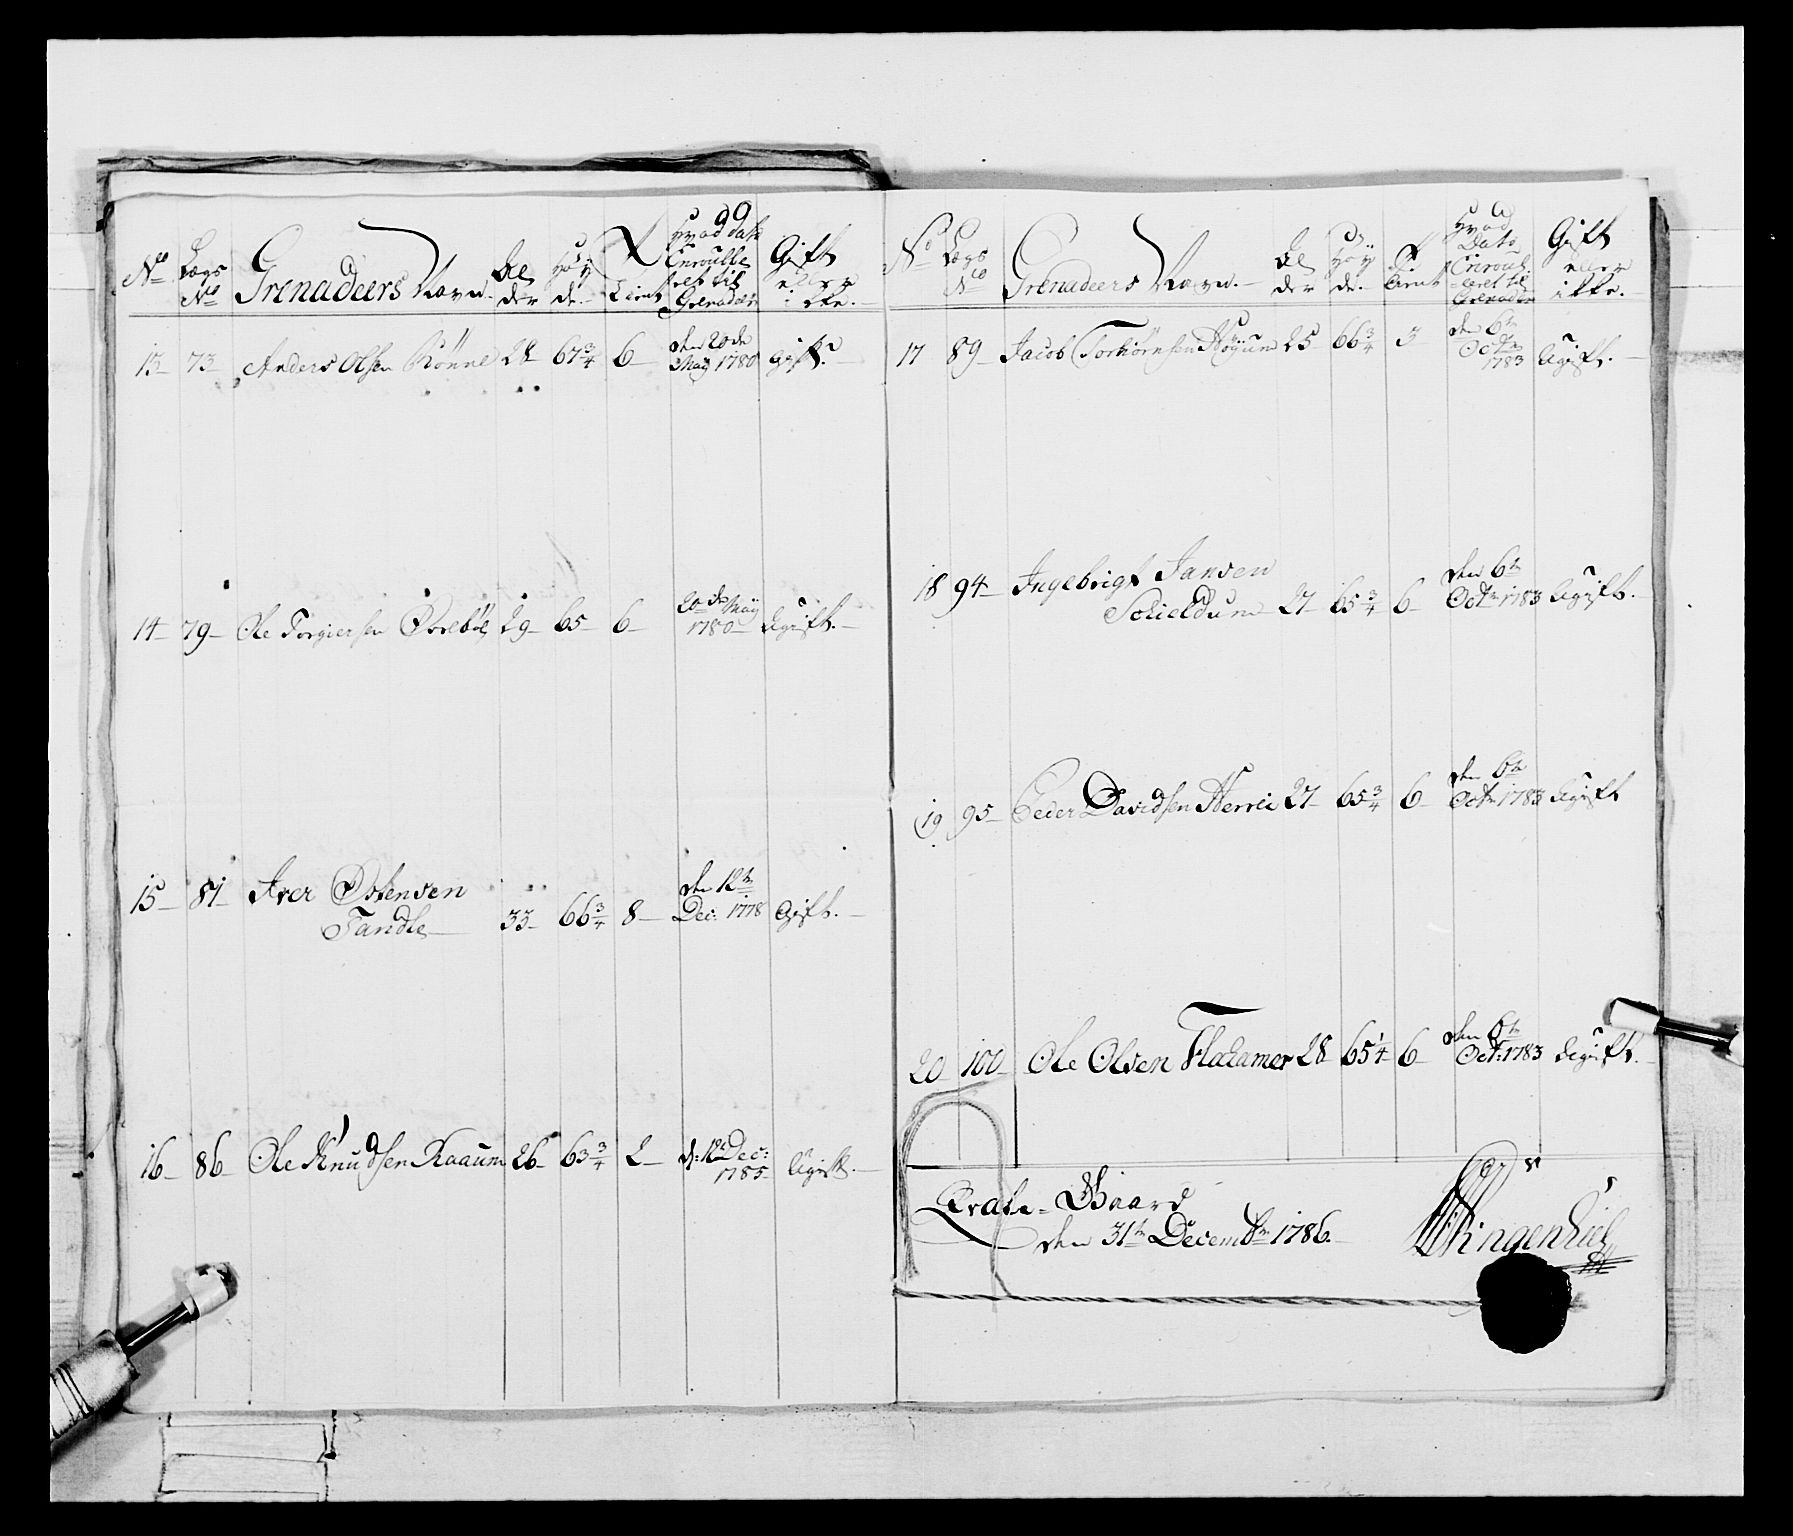 No Lægs No Grenadeers Navn. Al der Høy de. Tient Hvad dato Enroulle ret til Grenadeer Gift eller ikke.
13 73 Anders Olsen Rønne 28 67 3/4 6 den 20de May 1780 gift.
14 79 Ole Torgiersen 29 65 6 20de May 1780 Ugift.
15 81 Iver Østensen
Tandle 33 66 3/4 8 den 12te Dec: 1778 Gift.
16 86 Ole Knudsen Raaum 26 63 3/4 2 d: 12te Dec: 1785 Ugift.
No Lægs No Grenadeers Navn. Al der Høy de. Tient Hvad Dato Enroul leret til Grenadeer Gift eller ikke.
17 89 Jacob Torkiørnsen Høyum 25 66 3/4 3 den 6te Octr 1783 Ugift.
18 94 Ingebrigt Jansen
Schieldum 27 65 3/4 6 den 6te Octr 1783 Ugift.
19 95 Peder Davidsen Herrei 27 65 3/4 6 den 6te Octr 1783 Ugift
20 100 Ole Olsen Fladamer 28 65 1/4 6 den 6te Oct: 1783 Ugift.
Qvate-Gaard
den 31te Decembr 1786.